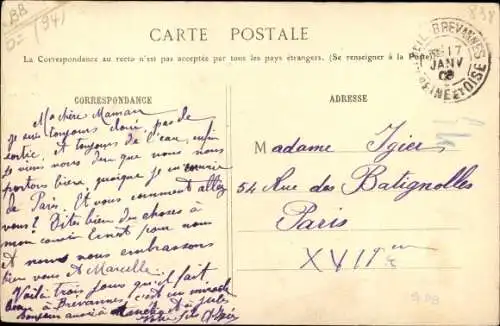 BB
D= (94)
838
CARTE POSTALE
La Correspondance au recto n'est pas acceptée par tous les pays étrangers. (Se renseigner à la Poste)
BREVANNES
17
JANV
SEINE ET OISE
CORRESPONDANCE
ADRESSE
Ma chère Maman
Je suis toujours pas de
sortie, et toujours de l'eau, enfin
je viens vous dire que nous nous
portons bien, quoique je
de Paris. Et vous comment allez
vous? Dites bien des choses à
mon cousin Ernest pour nous
et nous vous embrassons
bien vous et Marcelle.
Voilà trois jours qu'il fait
beau à Brevannes, c'est un miracle
bonjour aussi à et à Jules
Votre fils
Madame Igier
54 Rue des Batignolles
Paris
XVII em